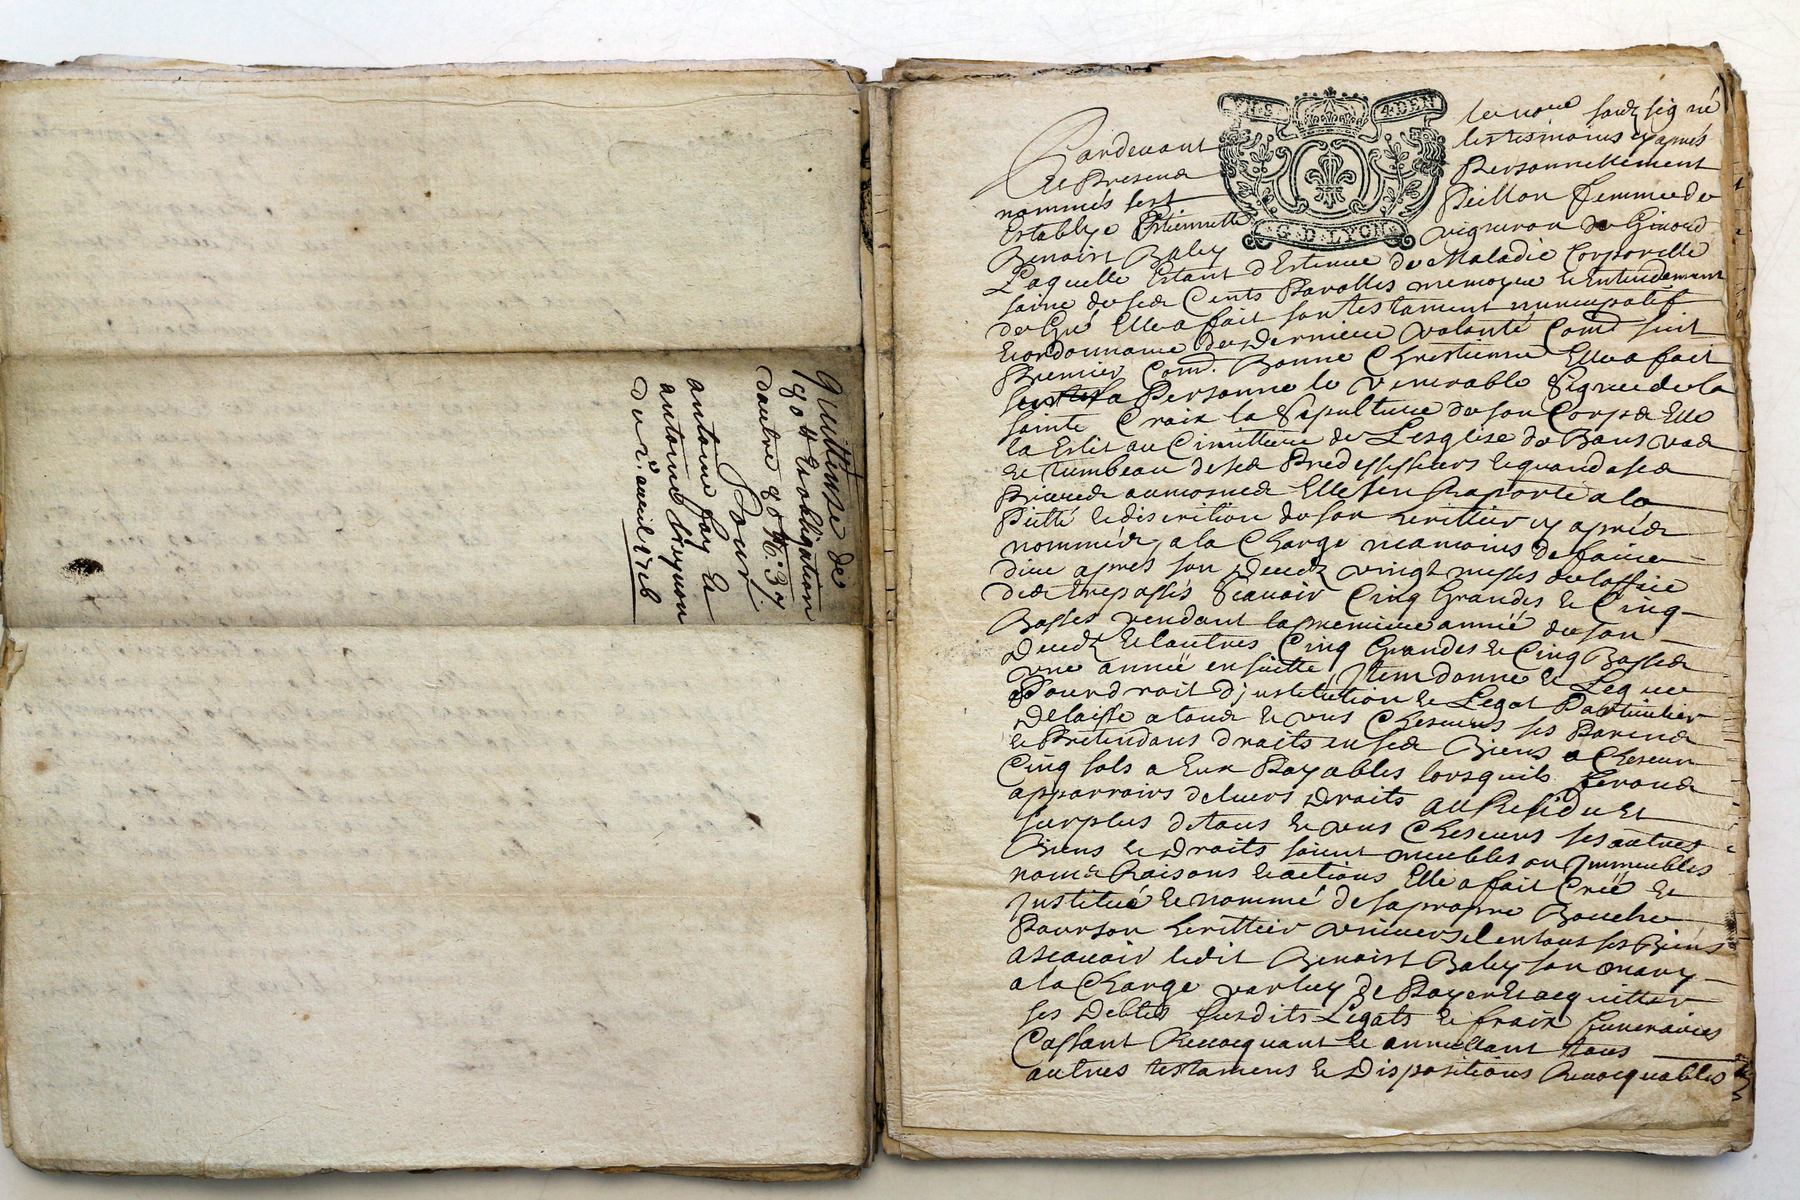 Quittance de
90 ₶ et obligation
dautre 90 ₶: 3 s
Pour
antoine fay et
antoine
du 2e. avril 1716
4 DEN
G D LYON
Pardevant le no.re soubsigné
Et Presence les tesmoins cy apres
nommés sest Personnellement
Establye Estiennette Peillon femme de
Benoist Baley vigneron de Givord
Laquelle Estant d'Estenue de Maladie Corporelle
saine de ses Cents Parolles memoyre et Entendement
de Gré Elle a fait son testament nuncupatif
et ordonnance de Derniere volanté Come suit
Premier Com. Bonne Chrestienne Elle a fait
sur sa Personne le venerable signe de la
sainte Croix la sepulture de son Corps Elle
la Eslit au Cimittiere de Lesglise de Bans
et tumbeau de ses Predessesseurs et quand a ses
Prieres aumosnes Elle sen Raporte a la
Pietté et discrition de son herittier cy aprés
nommée, a la Charge neamoins de faire
dire apres son Decedz vingt messes de loffice
des trepassés scavoir Cinq Grandes et Cinq
Basses pendant la premiere année de son
Decedz et lautres Cinq Grandes et Cinq Basses
une année en suitte, Item donne et Legue
Pour droit d'justitution et Legat Particulier
Delaisse a tous et uns Chescuns ses Parens
et Pretendans droits en ses Biens a Chescun
Cinq sols a Eux Payables lorsquils feront
apparroirs de leurs Droits au Residu et
surplus de tous et uns Chescuns ses autres
Biens et Droits soient meubles ou Immeubles
noms Raisons et actions Elle a fait Créé et
Justitué et nommé de sa propre Bouche
Pour son herittier universel en tous ses Biens
ascavoir ledit Benoist Baley son mary
a la Charge par luy de Payer et acquitter
ses Debtes susdits Legats et fraix funeraires
Cassant Revocquant et annullant tous
autres testamens et Dispositions Revocquables